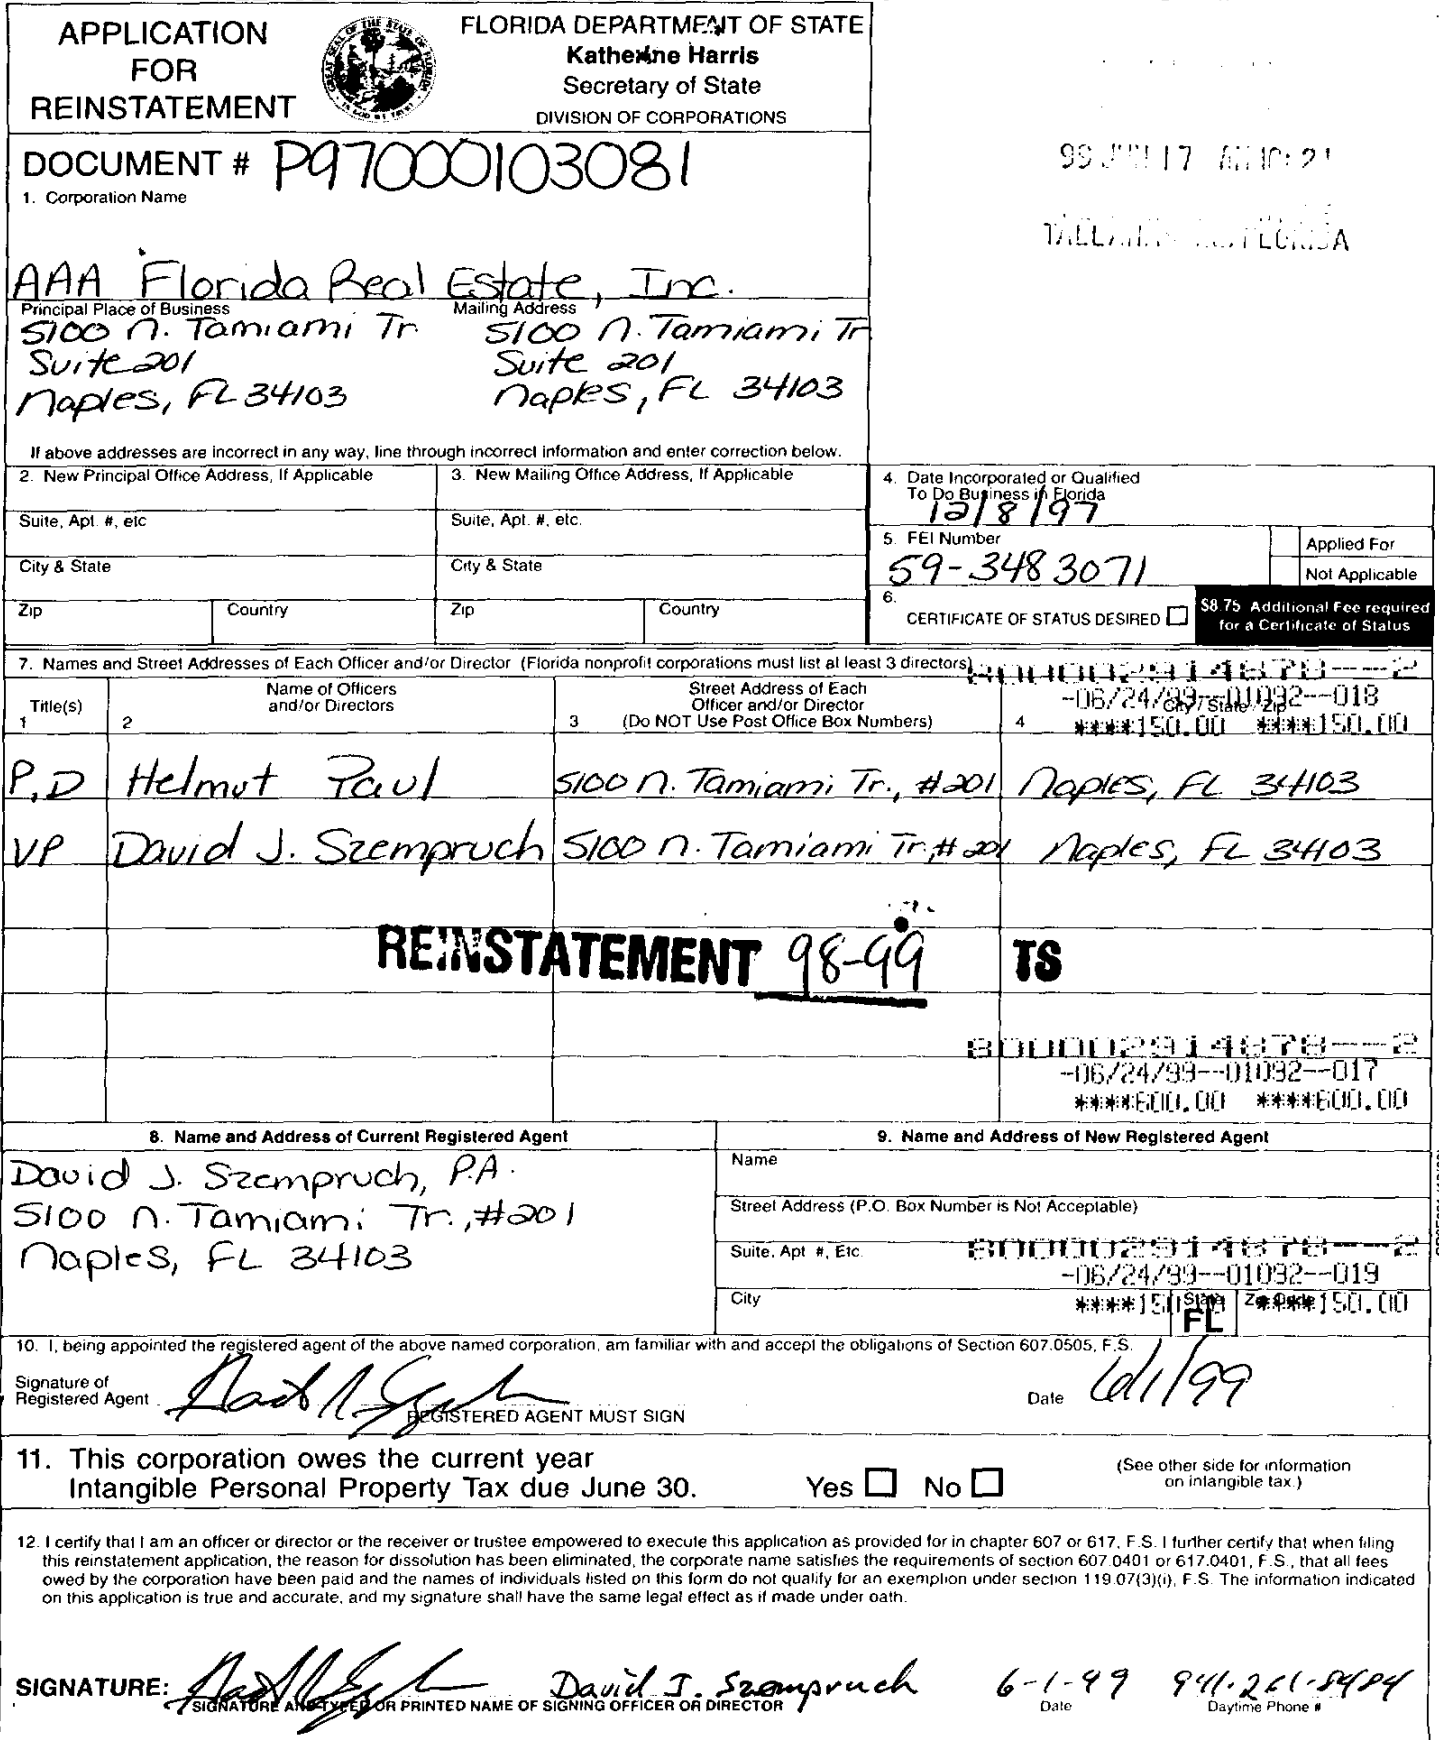 APPLICATION
FOR
REINSTATEMENT
FLORIDA DEPARTMENT OF STATE
Katherine Harris
Secretary of State
DIVISION OF CORPORATIONS
DOCUMENT # P97000103081
1. Corporation Name
99 17 AM 10:21
FLORIDA
AAA Florida Real Estate, Inc.
Principal Place of Business Mailing Address
5100 N. Tamiami Tr 5100 N. Tamiami Tr
Suite 201 Suite 201
Naples, FL 34103 Naples, FL 34103
If above addresses are incorrect in any way, line through incorrect information and enter correction below.
2. New Principal Office Address, If Applicable 3. New Mailing Office Address, If Applicable
Suite, Apt. #, etc Suite, Apt. #, etc.
City & State City & State
Zip Country Zip Country
4. Date Incorporated or Qualified
To Do Business in Florida
12/8/97
5. FEI Number
59-3483071
Applied For
Not Applicable
6.
CERTIFICATE OF STATUS DESIRED
$8.75 Additional Fee required
for a Certificate of Status
7. Names and Street Addresses of Each Officer and/or Director (Florida nonprofit corporations must list at least 3 directors)
800002914878---2
-06/24/99--01092--018
****150.00 ****150.00
Title(s) Name of Officers and/or Directors Street Address of Each Officer and/or Director (Do NOT Use Post Office Box Numbers) City / State / Zip
1 2 3 4
P,D Helmut Paul 5100 N. Tamiami Tr., #201 Naples, FL 34103
VP David J. Szempruch 5100 N. Tamiami Tr, #201 Naples, FL 34103
REINSTATEMENT 98-99 TS
800002914878---2
-06/24/99--01092--017
****600.00 ****600.00
8. Name and Address of Current Registered Agent
David J. Szempruch, P.A.
5100 N. Tamiami Tr., #201
Naples, FL 34103
9. Name and Address of New Registered Agent
Name
Street Address (P.O. Box Number is Not Acceptable)
Suite, Apt #, Etc.
800002914878---2
-06/24/99--01092--019
City
****150.00 ****150.00
State FL Zip Code
10. I, being appointed the registered agent of the above named corporation, am familiar with and accept the obligations of Section 607.0505, F.S.
Signature of
Registered Agent
REGISTERED AGENT MUST SIGN
Date 6/1/99
11. This corporation owes the current year
Intangible Personal Property Tax due June 30. Yes No
(See other side for information
on intangible tax.)
12. I certify that I am an officer or director or the receiver or trustee empowered to execute this application as provided for in chapter 607 or 617, F.S. I further certify that when filing
this reinstatement application, the reason for dissolution has been eliminated, the corporate name satisfies the requirements of section 607.0401 or 617.0401, F.S., that all fees
owed by the corporation have been paid and the names of individuals listed on this form do not qualify for an exemption under section 119.07(3)(i), F.S. The information indicated
on this application is true and accurate, and my signature shall have the same legal effect as if made under oath.
SIGNATURE: David J. Szempruch 6-1-99 941-261-8484
SIGNATURE AND TYPED OR PRINTED NAME OF SIGNING OFFICER OR DIRECTOR Date Daytime Phone #